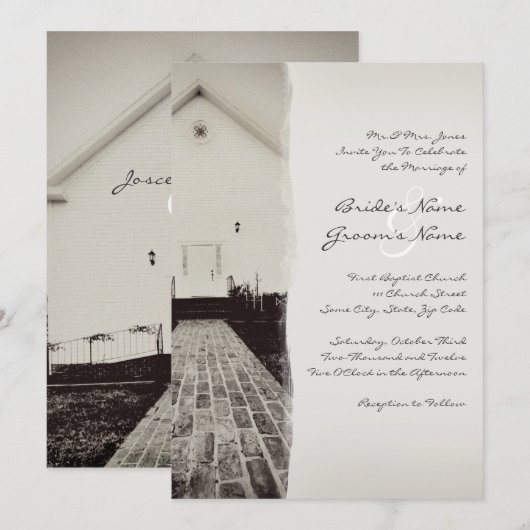 Josce
Mr. & Mrs. Jones
Invite You To Celebrate
the Marriage of
&
Bride's Name
Groom's Name
First Baptist Church
111 Church Street
Some City, State, Zip Code
Saturday, October Third
Two-Thousand and Twelve
Five O'Clock in the Afternoon
Reception to Follow